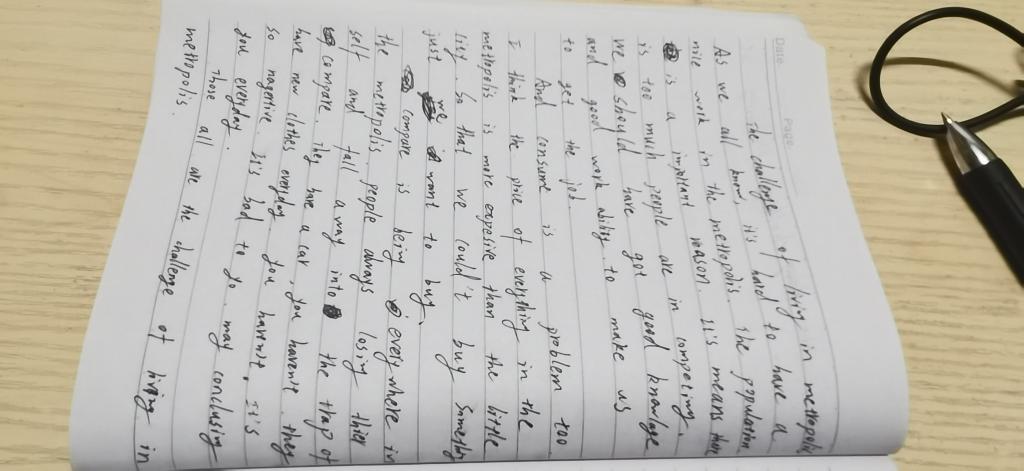 Date. Page.
The challenge of living in mettopolis
As we all know, it's hard to have a
nice work in the mettopolis. The population
is a important reason. It's means there
is too much people are in competing.
We should have got good knowlage
and good work ability to make us
to get the job.
And consume is a problem too.
I think the price of everything in the
mettopolis is more expesive than the little
city. So that we could't buy something
just we want to buy.
Compare is being everywhere in
the mettopolis. people always losing thier
self and fall away into the trap of
compare. They have a car, you haven't. they
have new clothes everyday. you haven't. It's
so nagertive. It's bad to yo may conclusing
you everyday.
Those all are the challenge of living in
mettopolis.